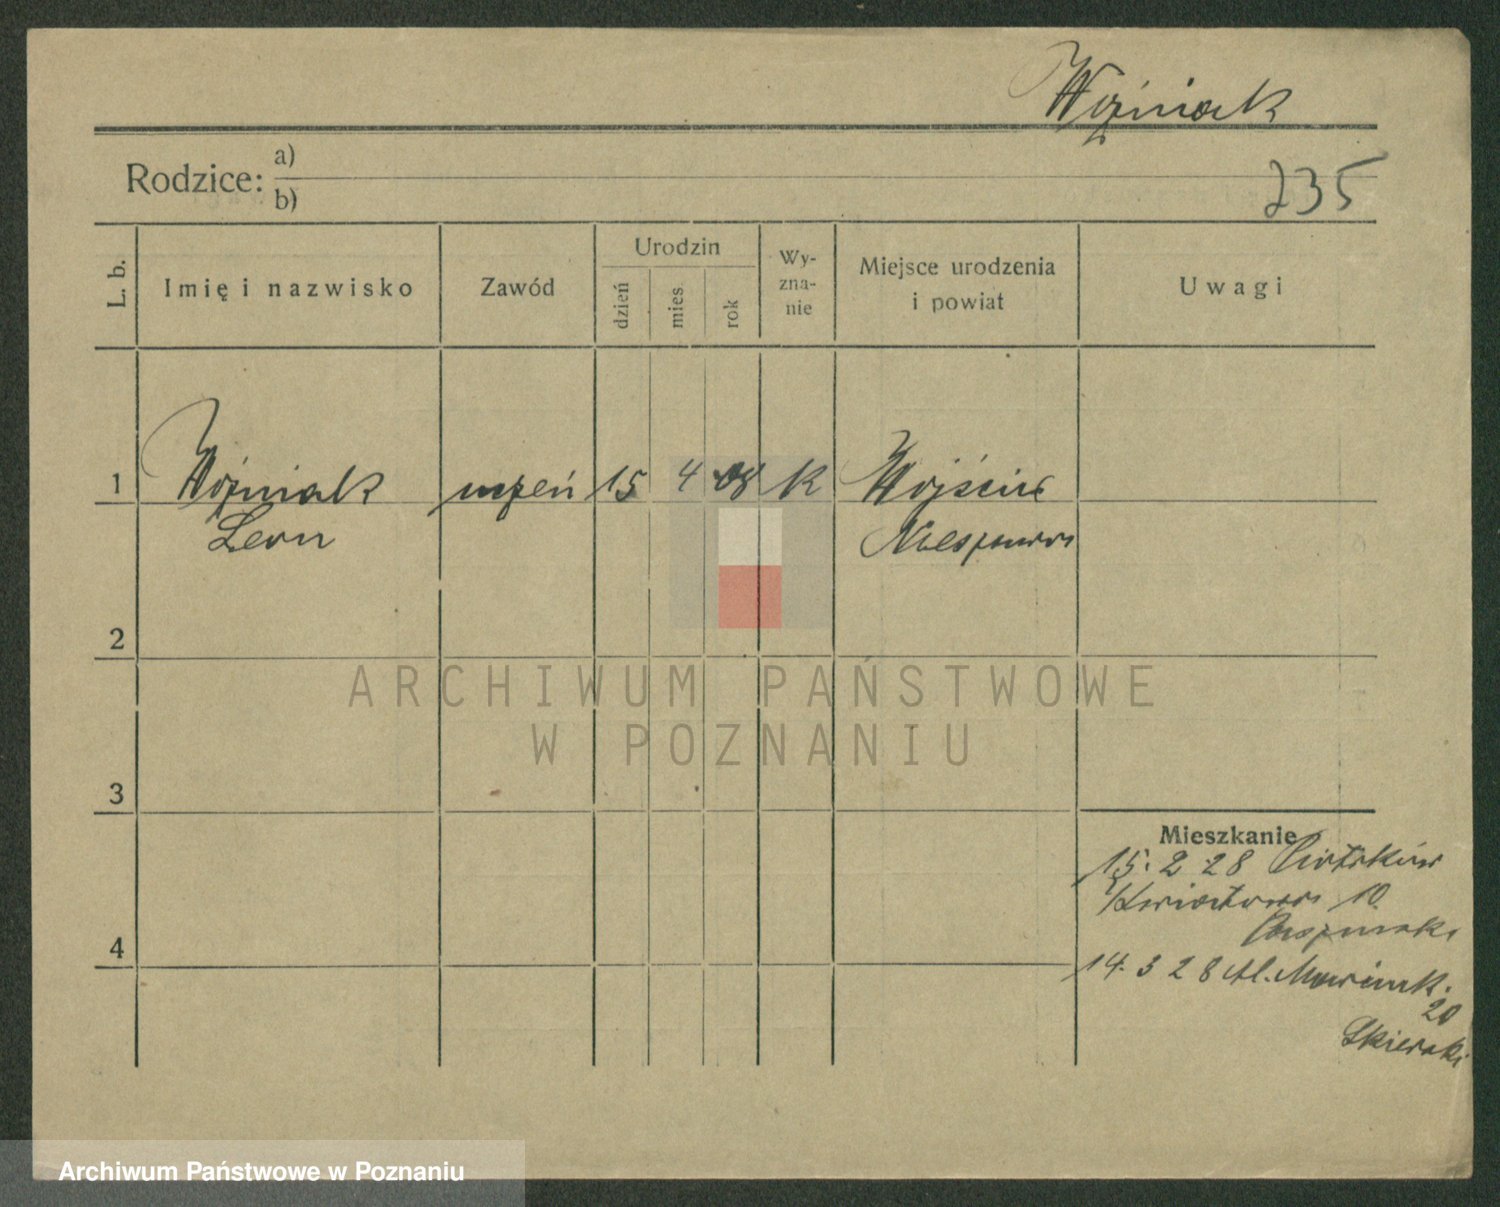 Woźniak
Rodzice: a)
b)
235
L. b.
Imię i nazwisko
Zawód
Urodzin
dzień
mies.
rok
Wy-
zna-
nie
Miejsce urodzenia
i powiat
Uwagi
1 Woźniak uczeń 15 4 08 K Wojście
Leon
2
ARCHIWUM PAŃSTWOWE
W POZNANIU
3
Mieszkanie
15. 2 28
Kwiatowa 10
4
14. 3 28 Al. Marcink.
20
Skierski
Archiwum Państwowe w Poznaniu